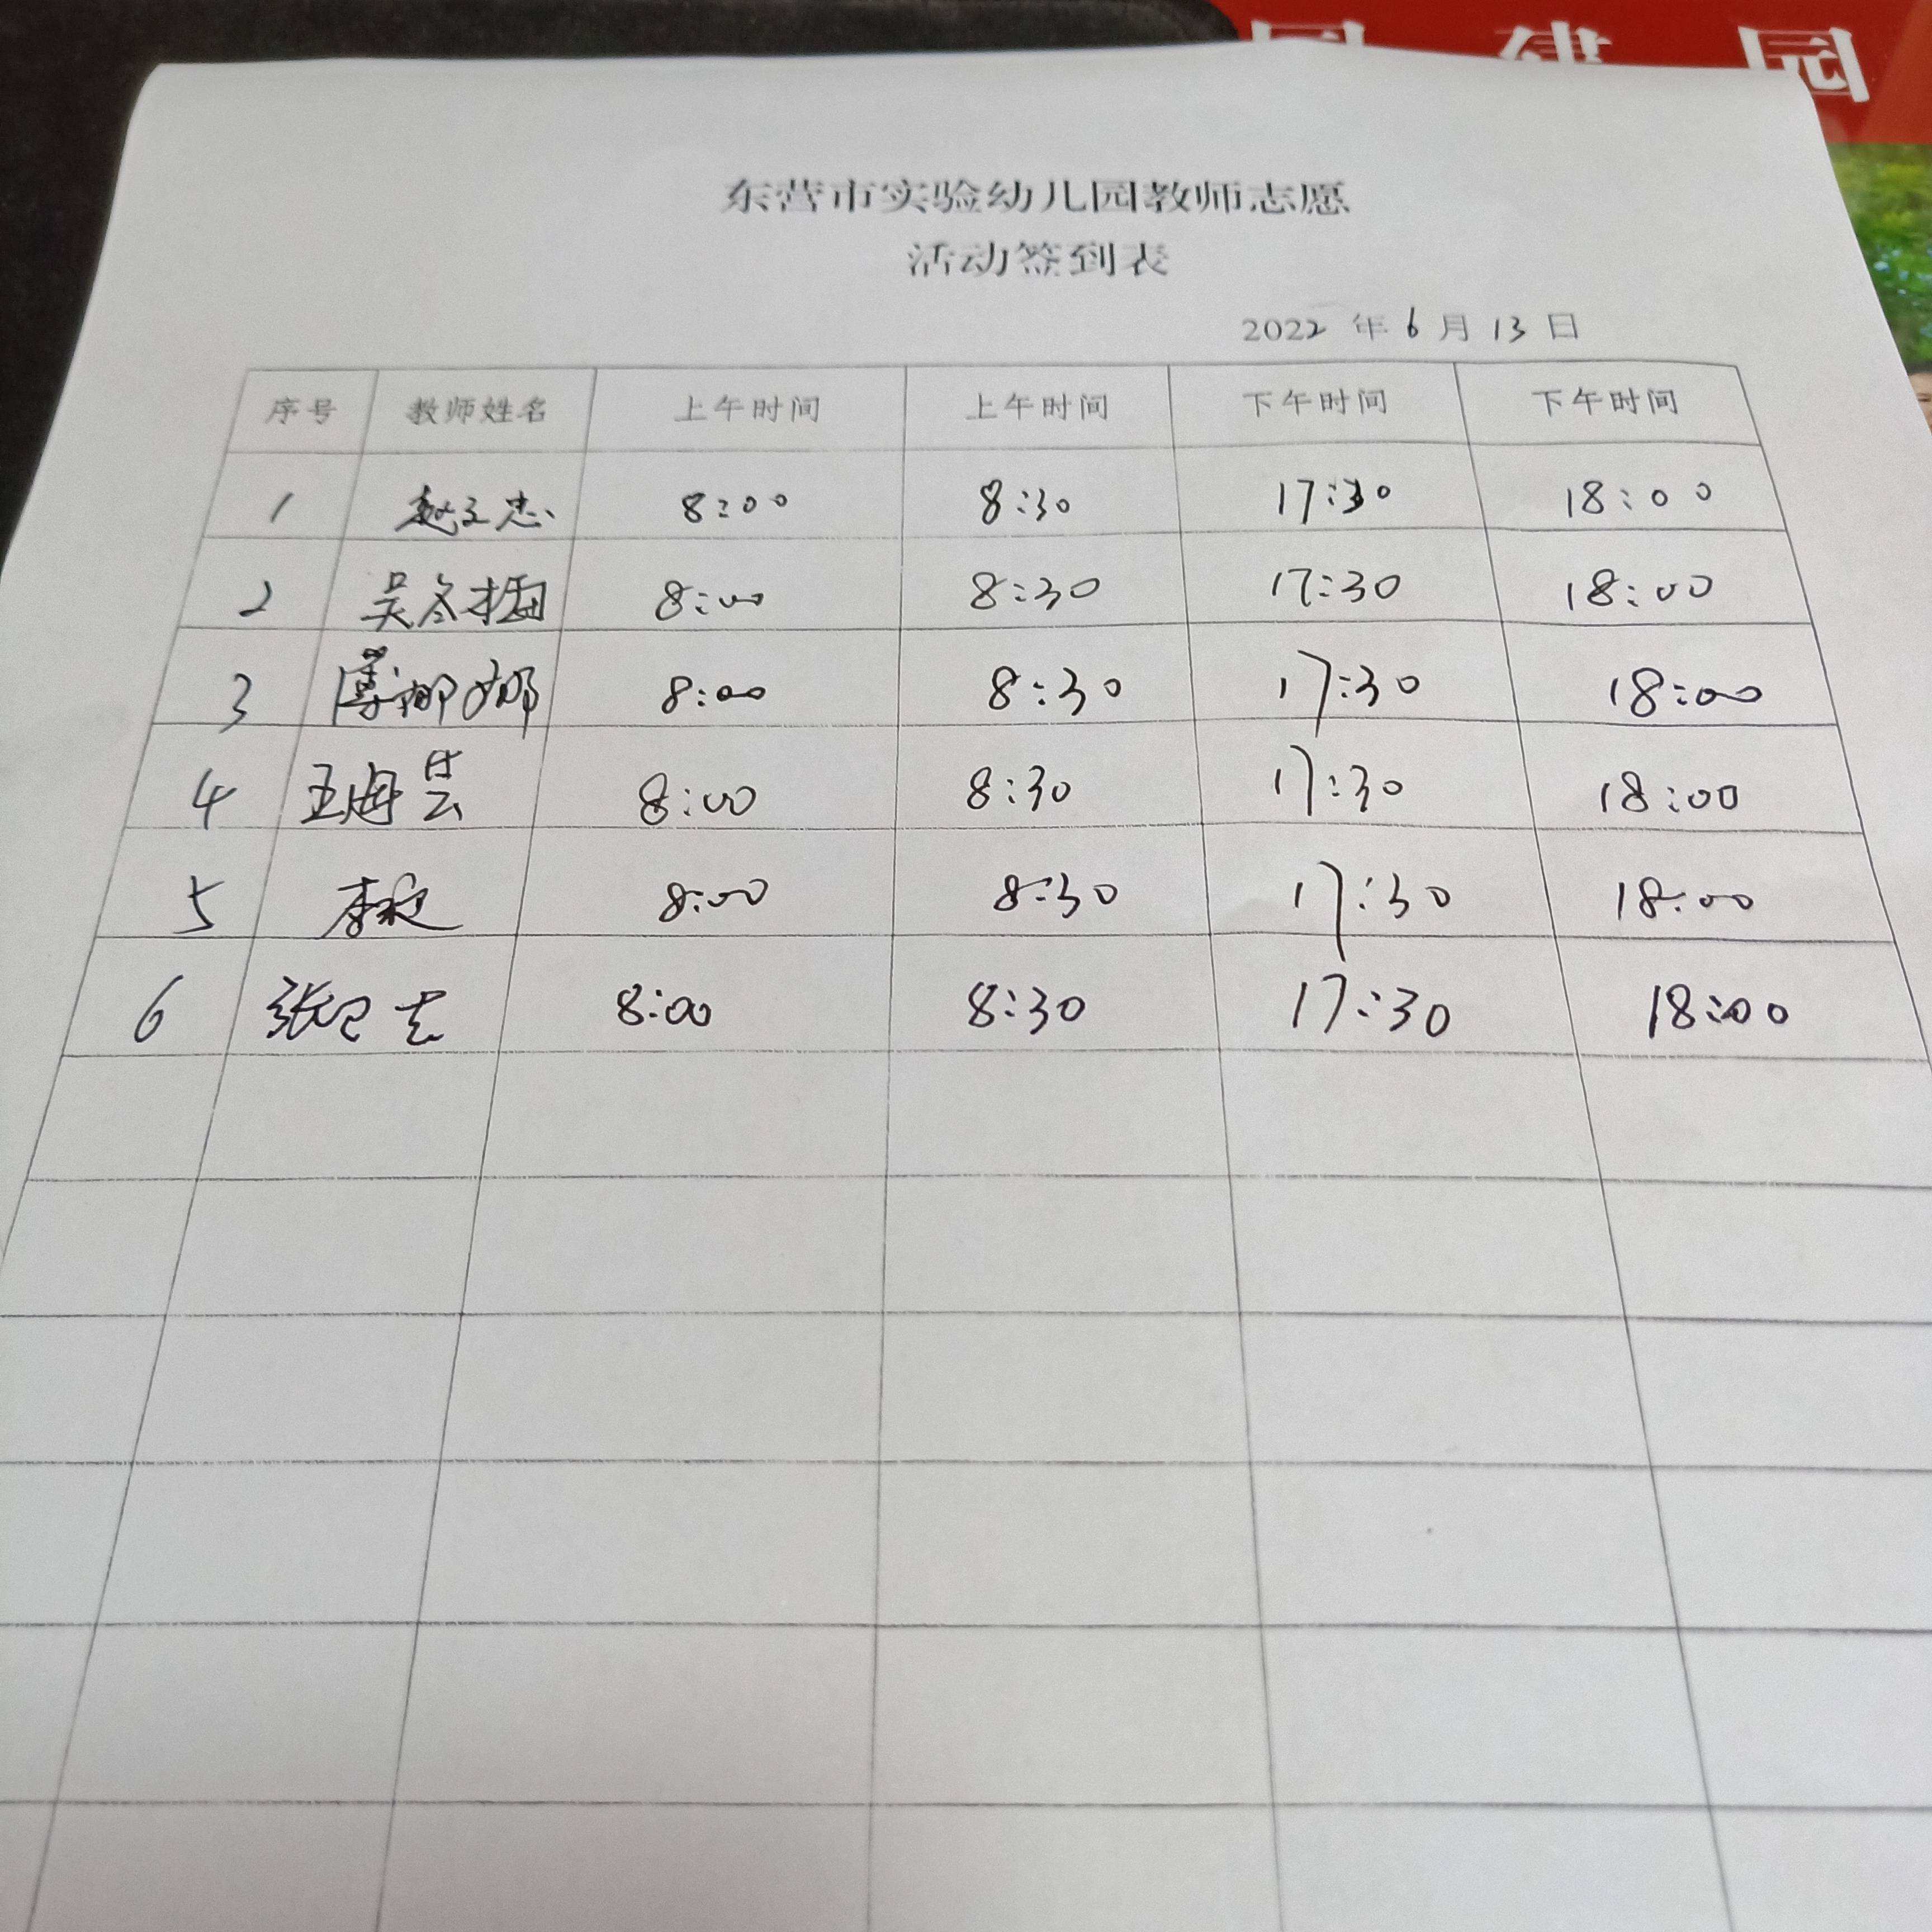 东营市实验幼儿园教师志愿
活动签到表
2022 年 6 月 13 日
序号 教师姓名 上午时间 上午时间 下午时间 下午时间
1 赵文忠 8:00 8:30 17:30 18:00
2 吴冬梅 8:00 8:30 17:30 18:00
3 娜娜 8:00 8:30 17:30 18:00
4 王海昙 8:00 8:30 17:30 18:00
5 李 8:00 8:30 17:30 18:00
6 张 8:00 8:30 17:30 18:00